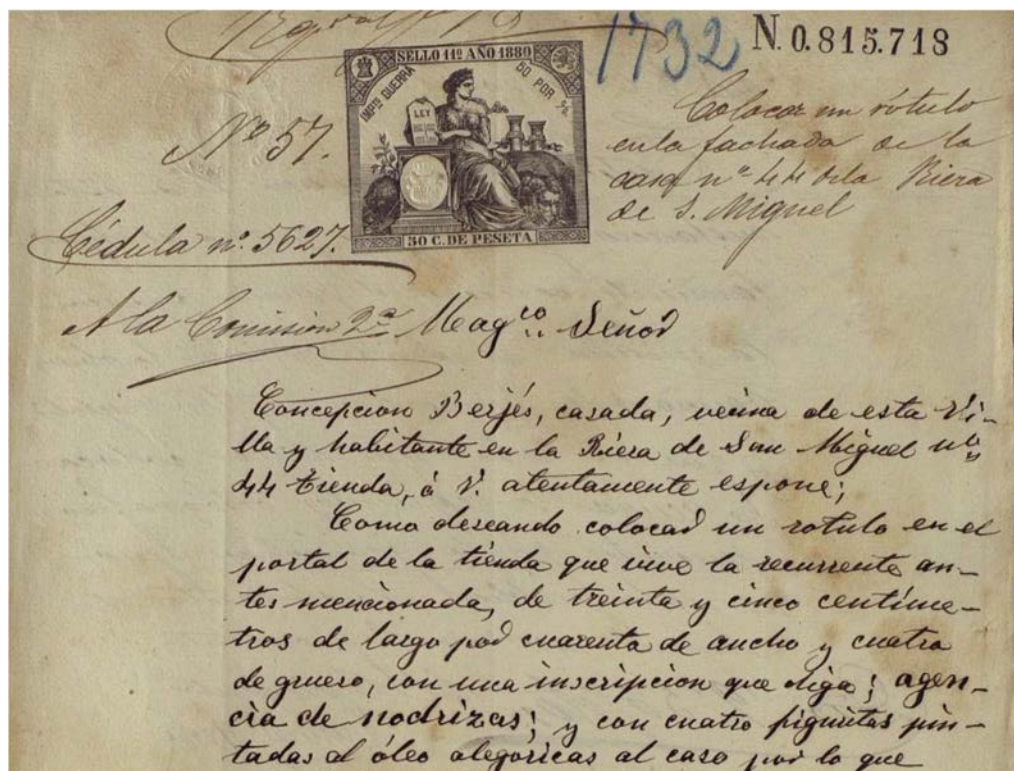 1732
N. 0.815.718
SELLO 11º AÑO 1880
IMPTO GUERRA
50 POR %
LEY
50 C. DE PESETA
Nº 57.
Cédula nº 5627.
Colocar un rótulo
en la fachada de la
casa nº 44 de la Riera
de S. Miguel
A la Comision 2ª
Magco Señor
Concepcion Berjés, casada, vecina de esta Vi-
lla y habitante en la Riera de San Miguel nº
44 tienda, á V. atentamente espone;
Como deseando colocar un rotulo en el
portal de la tienda que vive la recurrente an-
tes mencionada, de treinta y cinco centime-
tros de largo por cuarenta de ancho y cuatro
de grueso, con una inscripcion que diga; agen-
cia de nodrizas; y con cuatro figuritas pin-
tadas al óleo alegóricas al caso por lo que